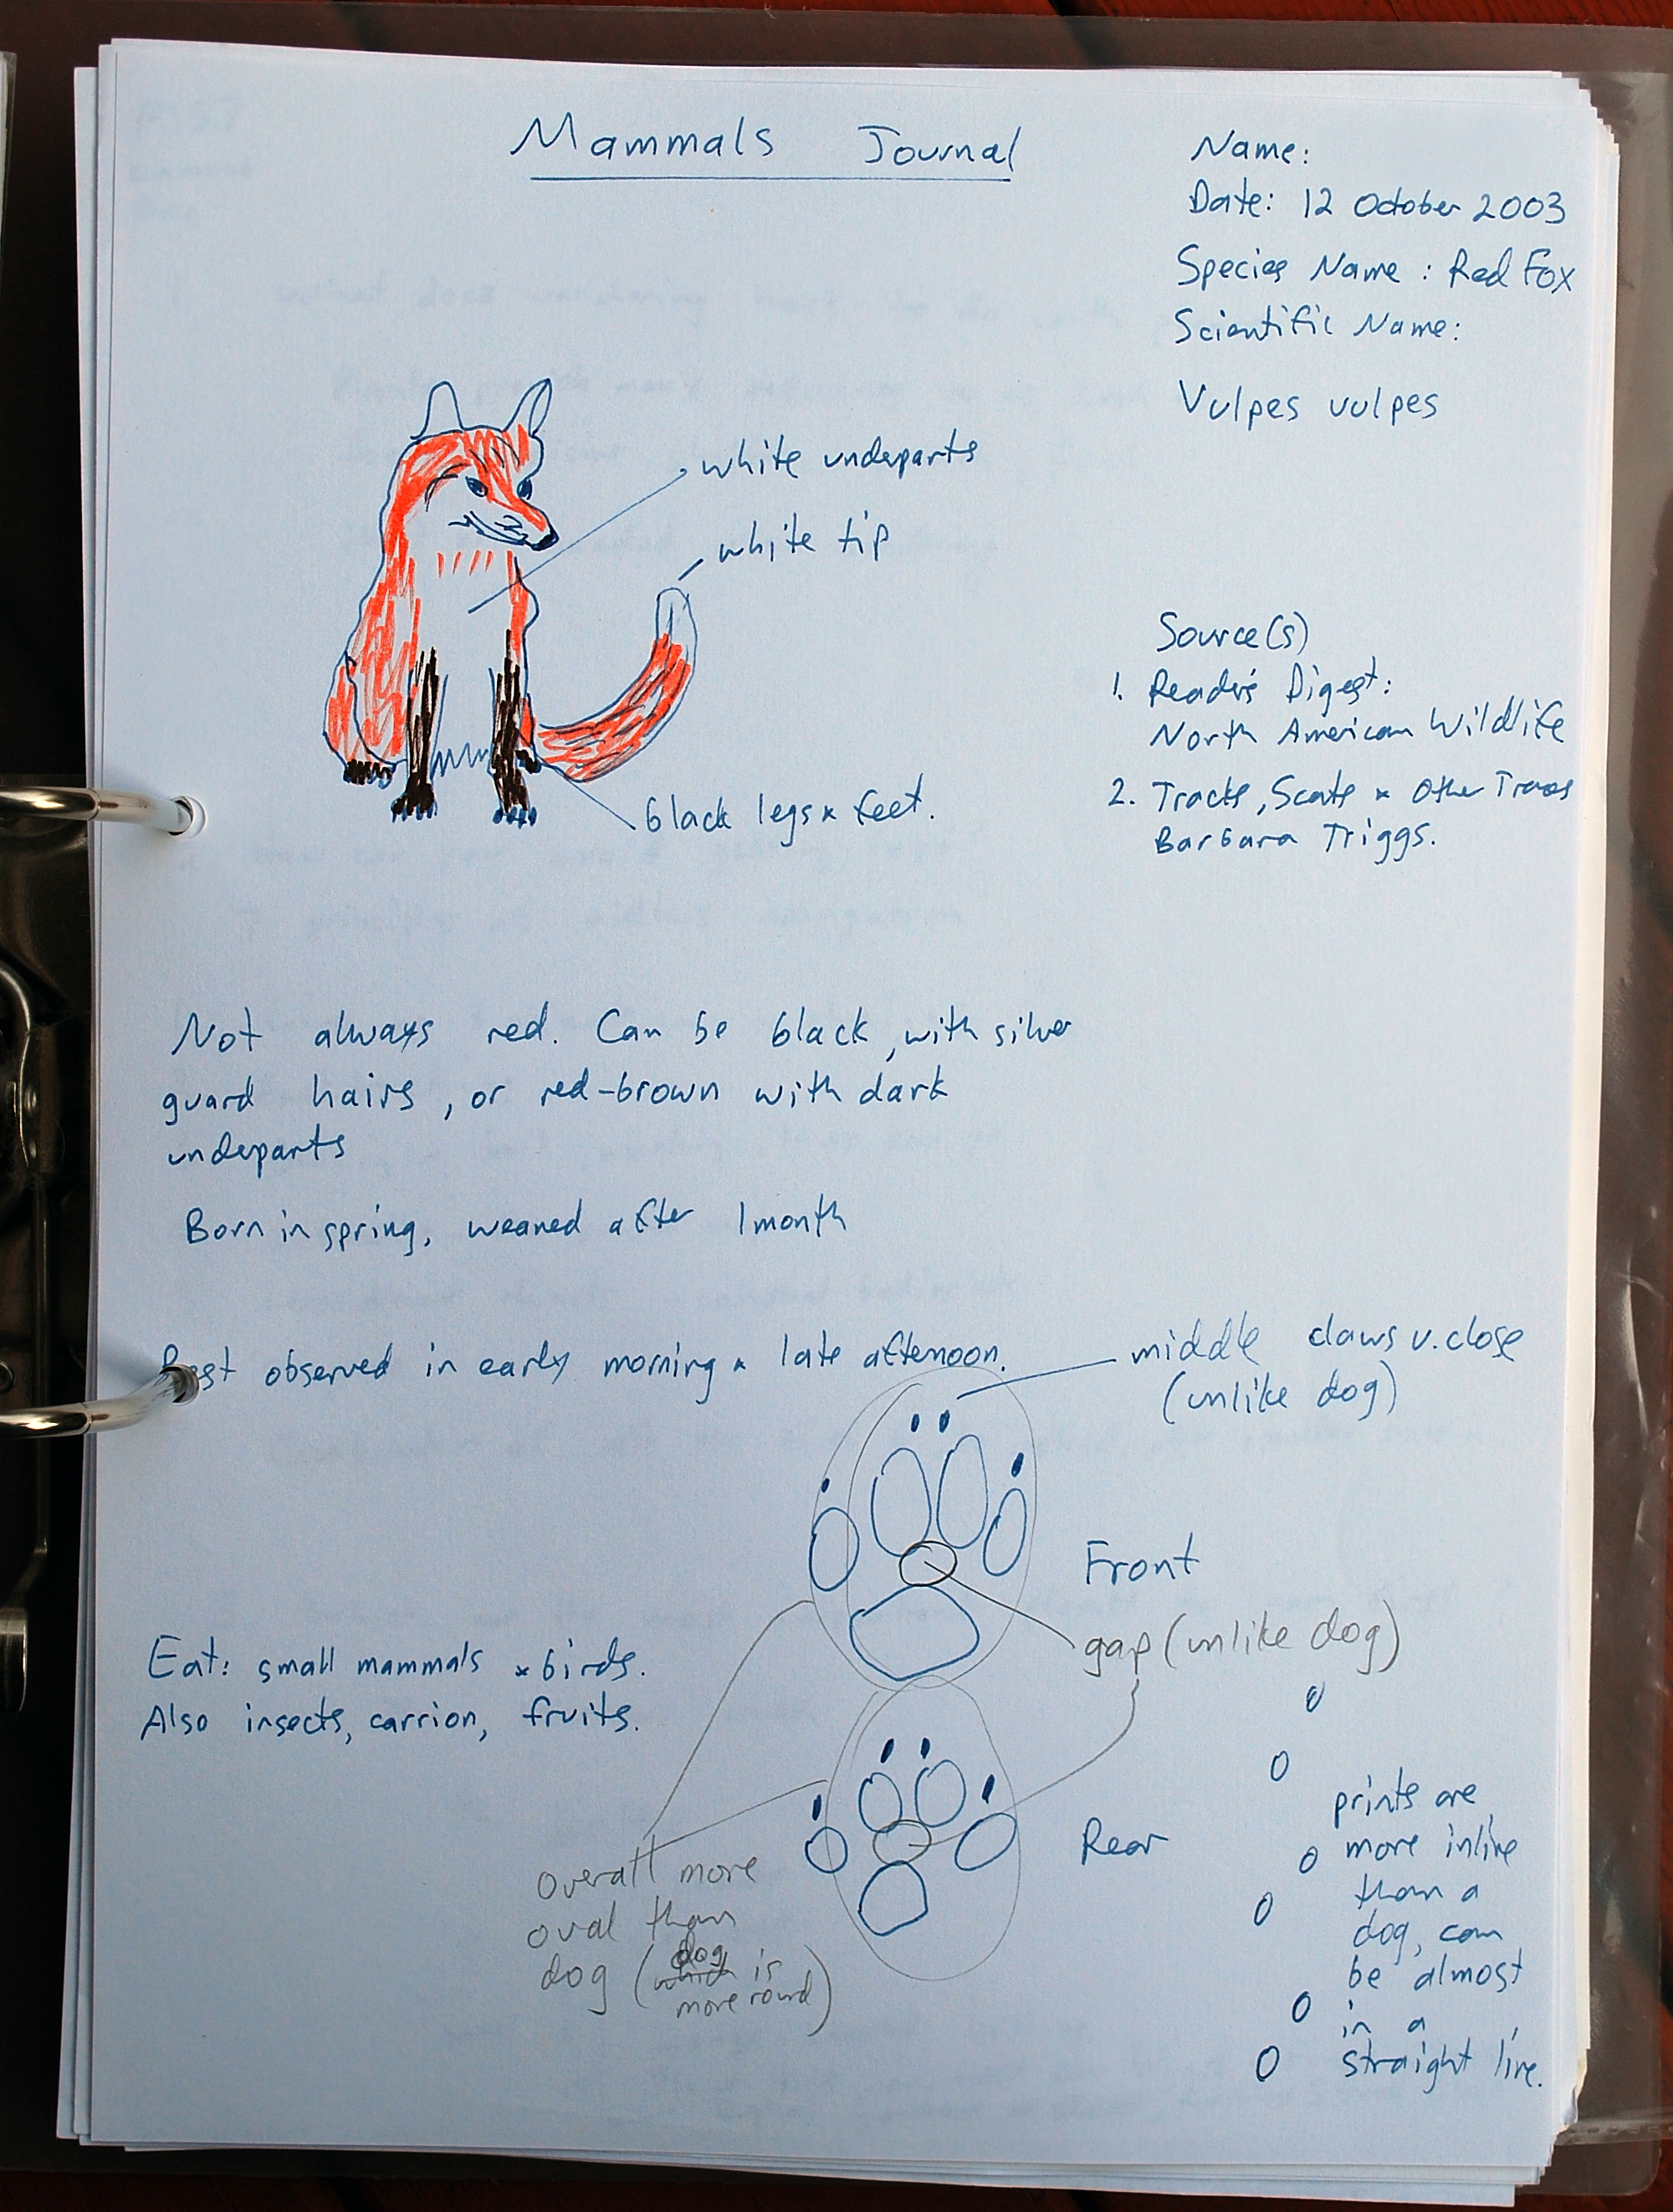 Mammals Journal
Name:
Date: 12 October 2003
Species Name: Red Fox
Scientific Name:
Vulpes vulpes
white underparts
white tip
black legs & feet.
Source(s)
1. Reader's Digest:
North American Wildlife
2. Tracks, Scats & Other Traces
Barbara Triggs.
Not always red. Can be black, with silver
guard hairs, or red-brown with dark
underparts
Born in spring, weaned after 1 month
Best observed in early morning & late afternoon.
middle claws v. close
(unlike dog)
Front
gap (unlike dog)
Eat: small mammals & birds.
Also insects, carrion, fruits.
Rear
Overall more
oval than
dog (dog is
more round)
prints are
more inline
than a
dog, can
be almost
in a
straight line.